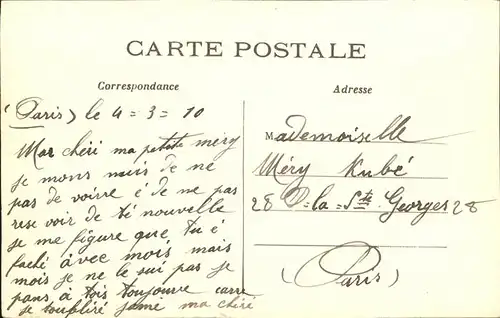 CARTE POSTALE
Correspondance
(Paris) le 4=3=10
Mar chéri ma petite méry
je mons nuis de ne
pas de voirre é de ne pas
rese voir de té nouvelle
je me figure que tu é
faché avec mois mais
mois je ne le sui pas je
pans, à tois toujoure carre
je toublire jamé ma chéri
Adresse
Mademoiselle
Méry Kubé
28 D=la=Ste Georges 28
(Paris)